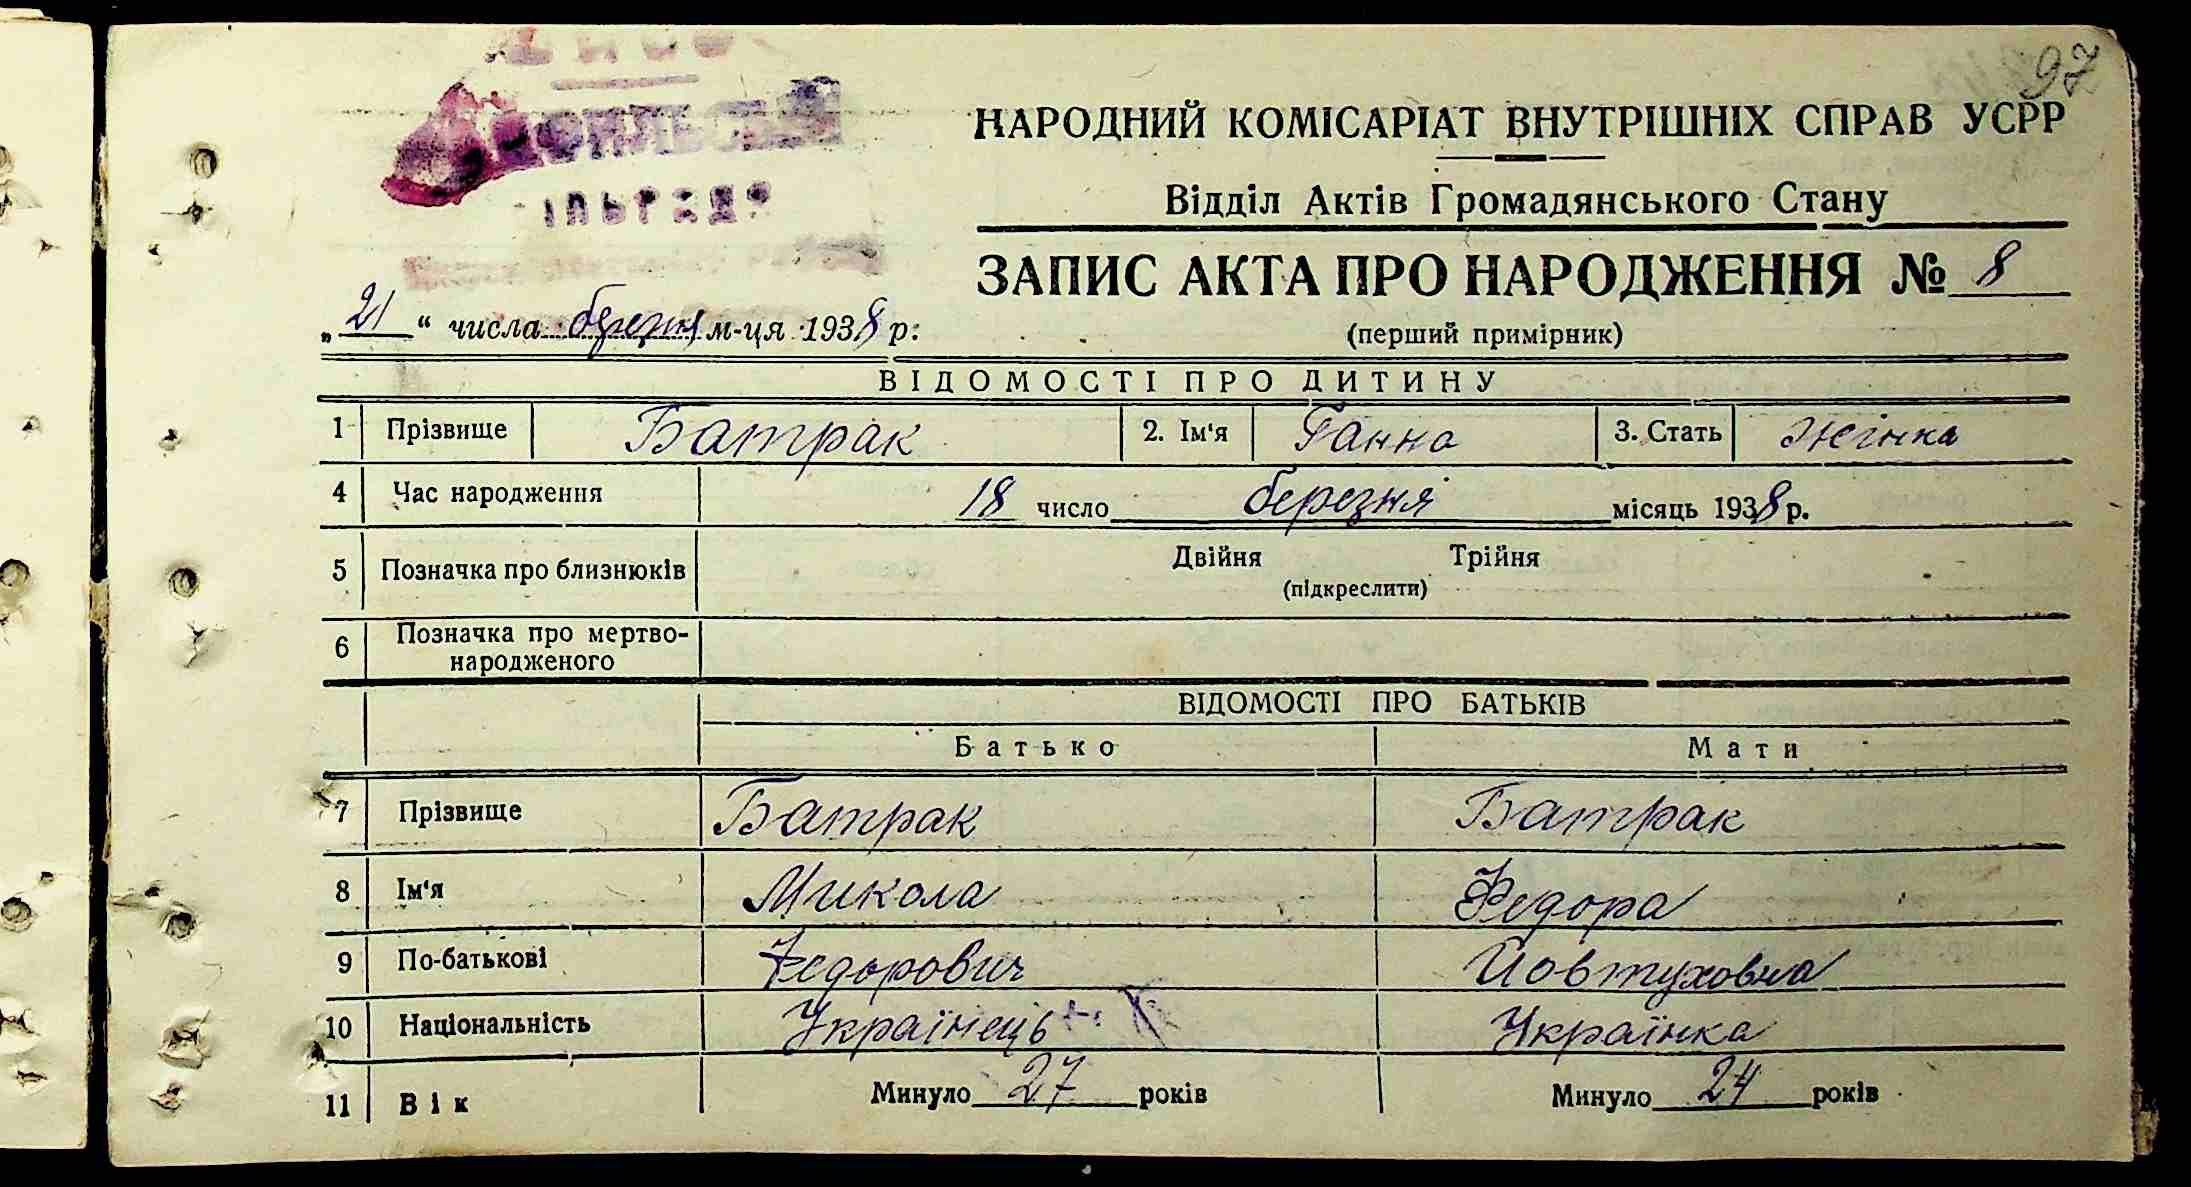 97
НАРОДНИЙ КОМІСАРІАТ ВНУТРІШНІХ СПРАВ УСРР
Відділ Актів Громадянського Стану
ЗАПИС АКТА ПРО НАРОДЖЕННЯ № 8
(перший примірник)
„21“ числа березня м-ця 1938 р:
ВІДОМОСТІ ПРО ДИТИНУ
1 Прізвище Батрак 2. Ім'я Ганна 3. Стать Жінка
4 Час народження 18 число березня місяць 1938 р.
5 Позначка про близнюків Двійня Трійня
(підкреслити)
6 Позначка про мертво-
народженого
ВІДОМОСТІ ПРО БАТЬКІВ
Батько Мати
7 Прізвище Батрак Батрак
8 Ім'я Микола Федора
9 По-батькові Федорович Йовтуховна
10 Національність Українець Українка
11 Вік Минуло 27 років Минуло 24 років